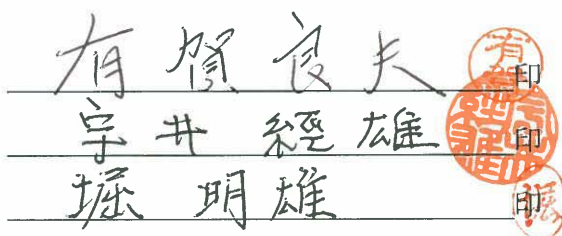 有賀良夫 印
宇井經雄 印
堀 明雄 印